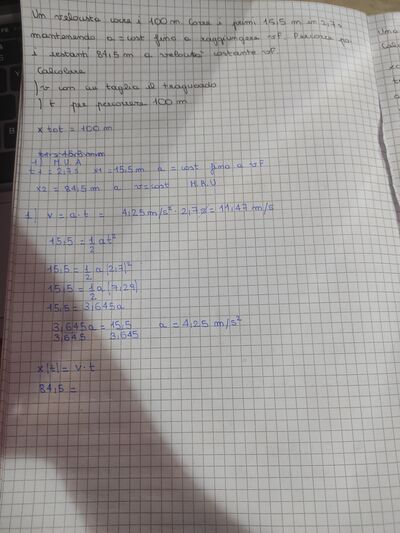 Un velocista corre i 100 m. Corre i primi 15,5 m in 2,7 s
mantenendo a = cost fino a raggiungere vF. Percorre poi
i restanti 84,5 m a velocità costante vF
Calcolare
) v con cui taglia il traguardo
) t per percorrere 100 m
x tot = 100 m
1) M.U.A
t1 = 2,7 s x1 = 15,5 m a = cost fino a vF
x2 = 84,5 m a v = cost M.R.U
1) v = a · t = 4,25 m/s² · 2,7 s = 11,47 m/s
15,5 = 1/2 at²
15,5 = 1/2 a (2,7)²
15,5 = 1/2 a (7,29)
15,5 = 3,645a
3,645a = 15,5 a = 4,25 m/s²
3,645 3,645
x(t) = v · t
84,5 =